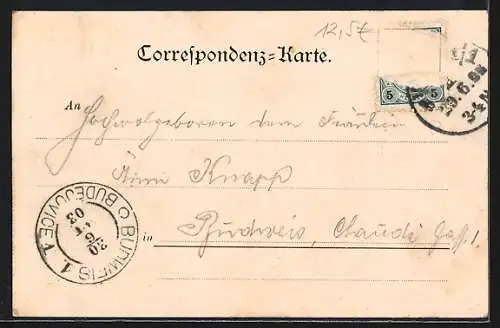 12,57
Correspondenz-Karte.
5 5
29.6.98
An Hochwolgeboren dem Fräulein
Knapp
in Budweis, Claudi Gass. 1
BUDWEIS 1 BUDĚJOVICE 1
20
03